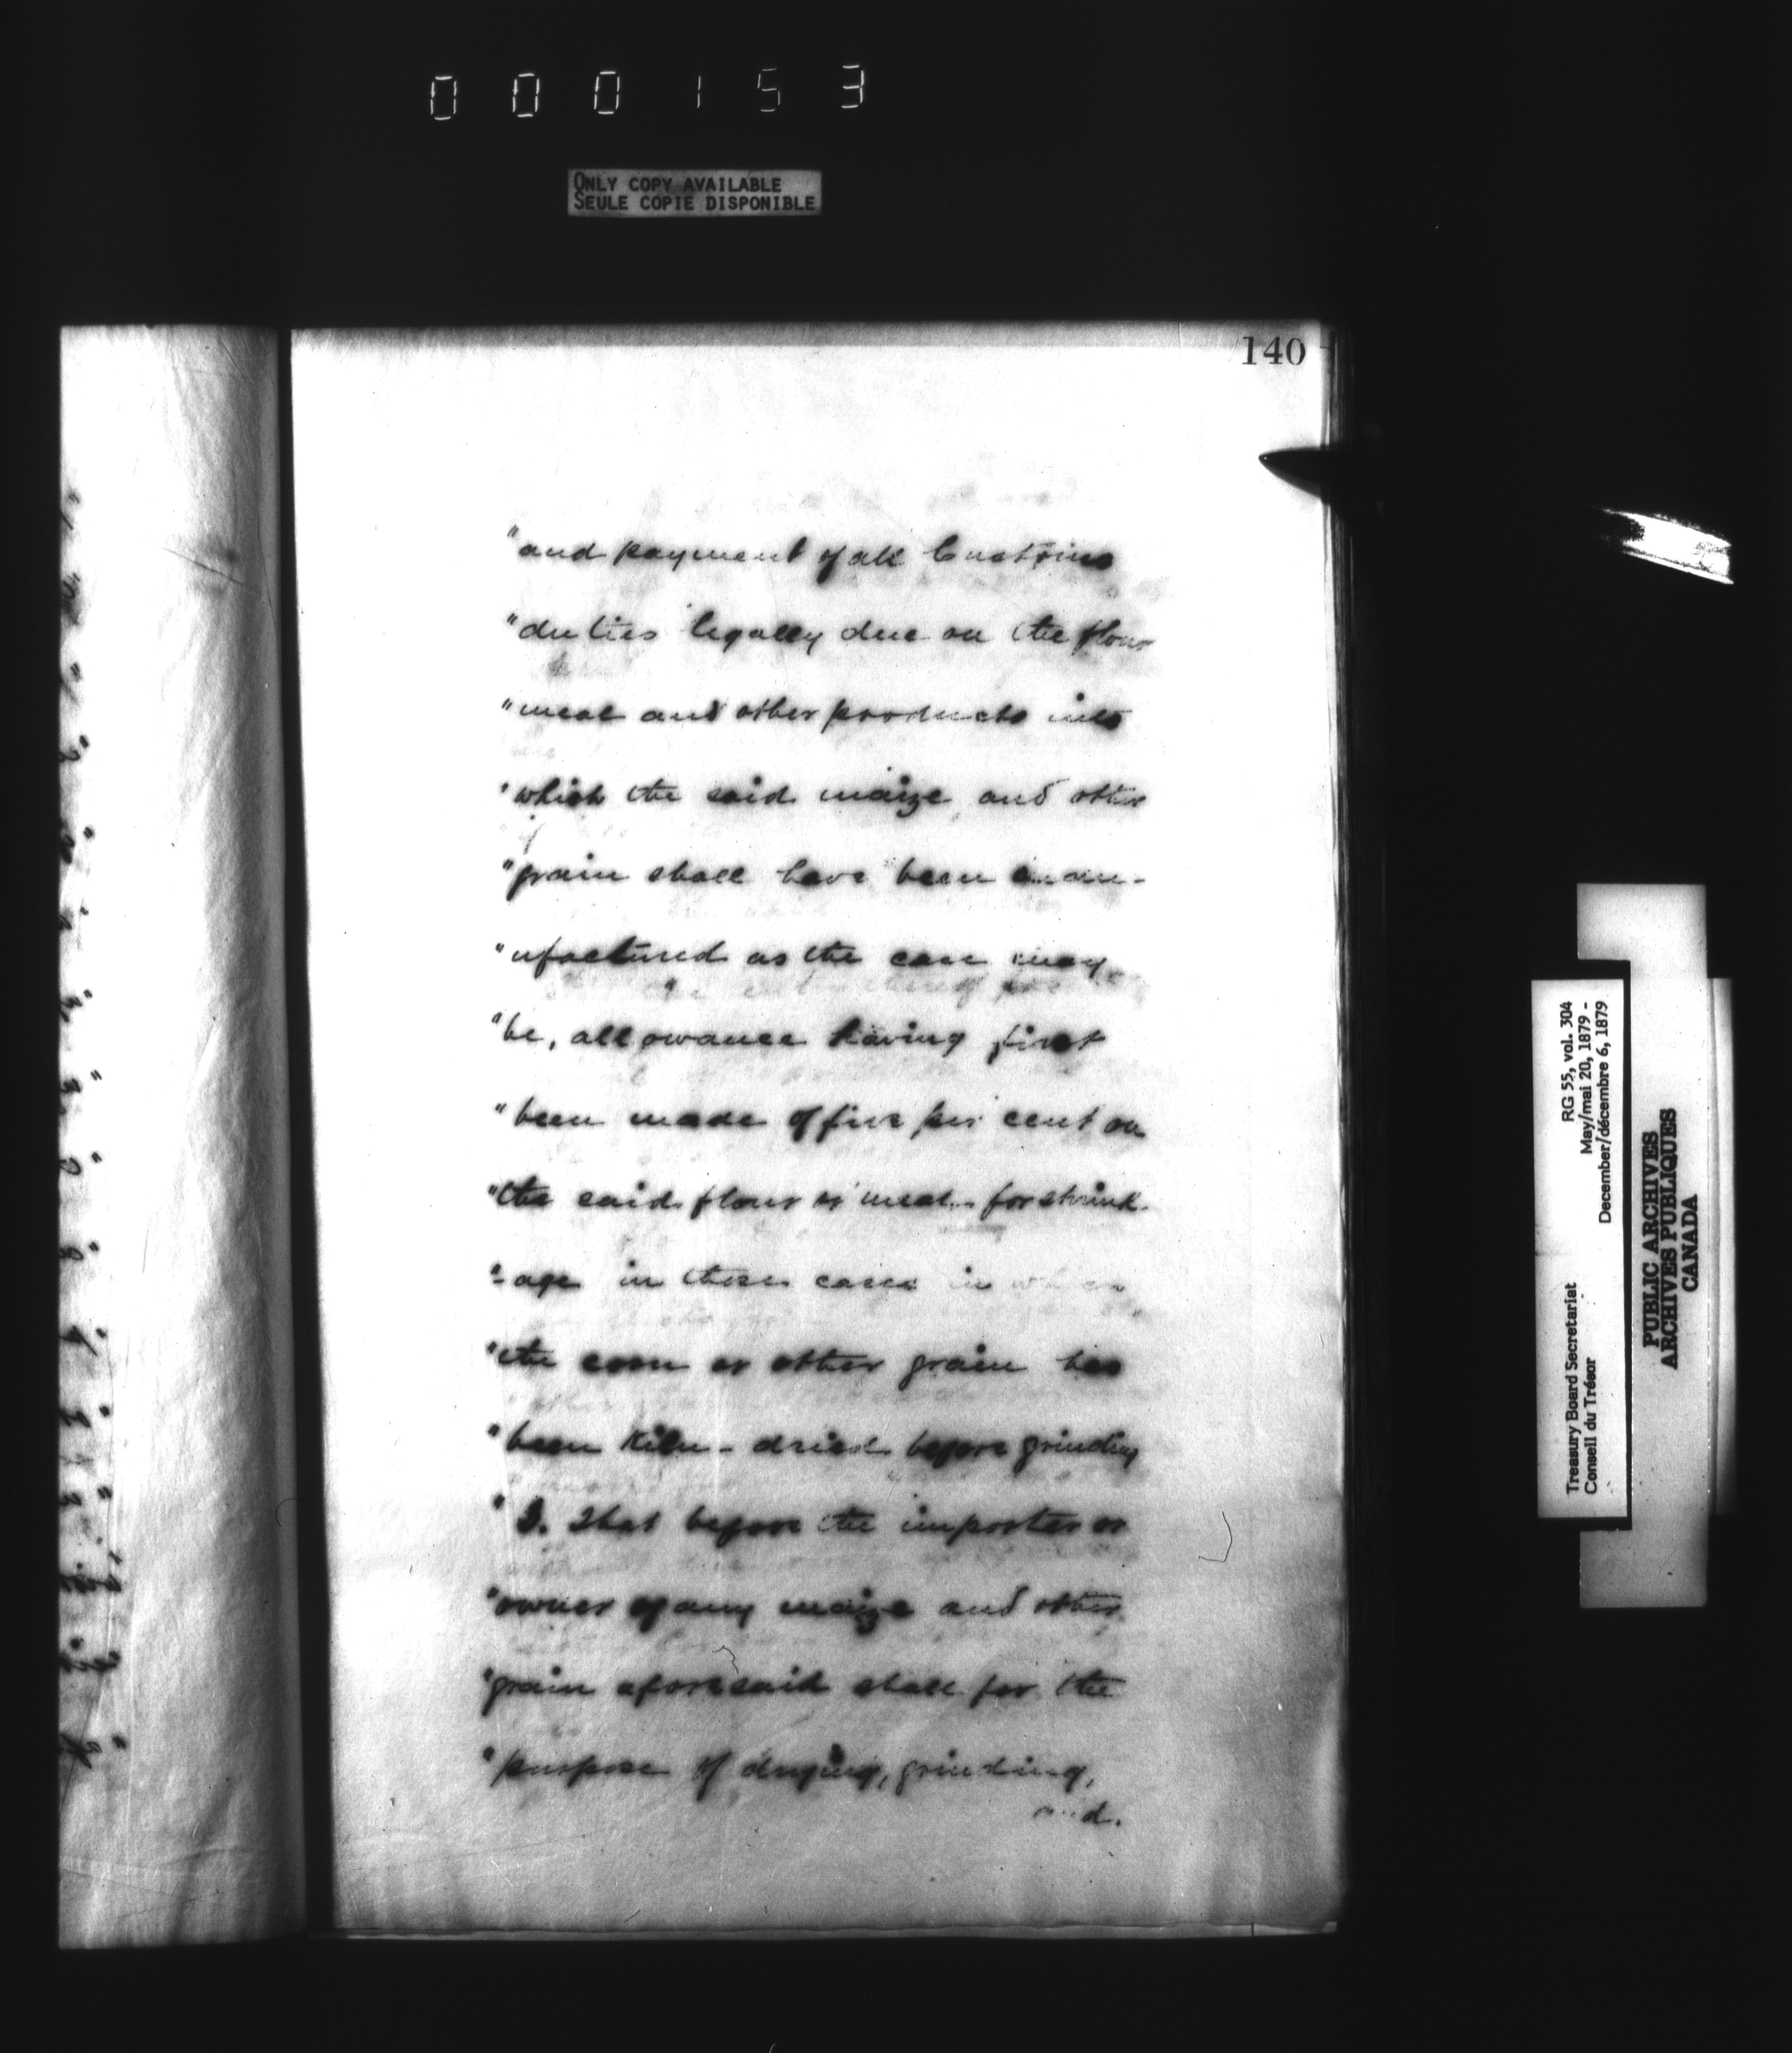 000153
ONLY COPY AVAILABLE
SEULE COPIE DISPONIBLE
140
"and payment of all Customs
"duties legally due on the flour
"meal and other products into
"which the said maize and other
"grain shall have been man-
"ufactured as the case may
"be, allowance having first
"been made of five per cent on
"the said flour or meal for shrink
"-age in those cases in which
"the corn or other grain has
"been Kiln-dried before grinding
"3. That before the importer or
"owner of any maize and other
"grain aforesaid shall for the
"purpose of drying, grinding,
and.
Treasury Board Secretariat RG 55, vol. 304
Conseil du Trésor May/mai 20, 1879 -
December/décembre 6, 1879
PUBLIC ARCHIVES
ARCHIVES PUBLIQUES
CANADA